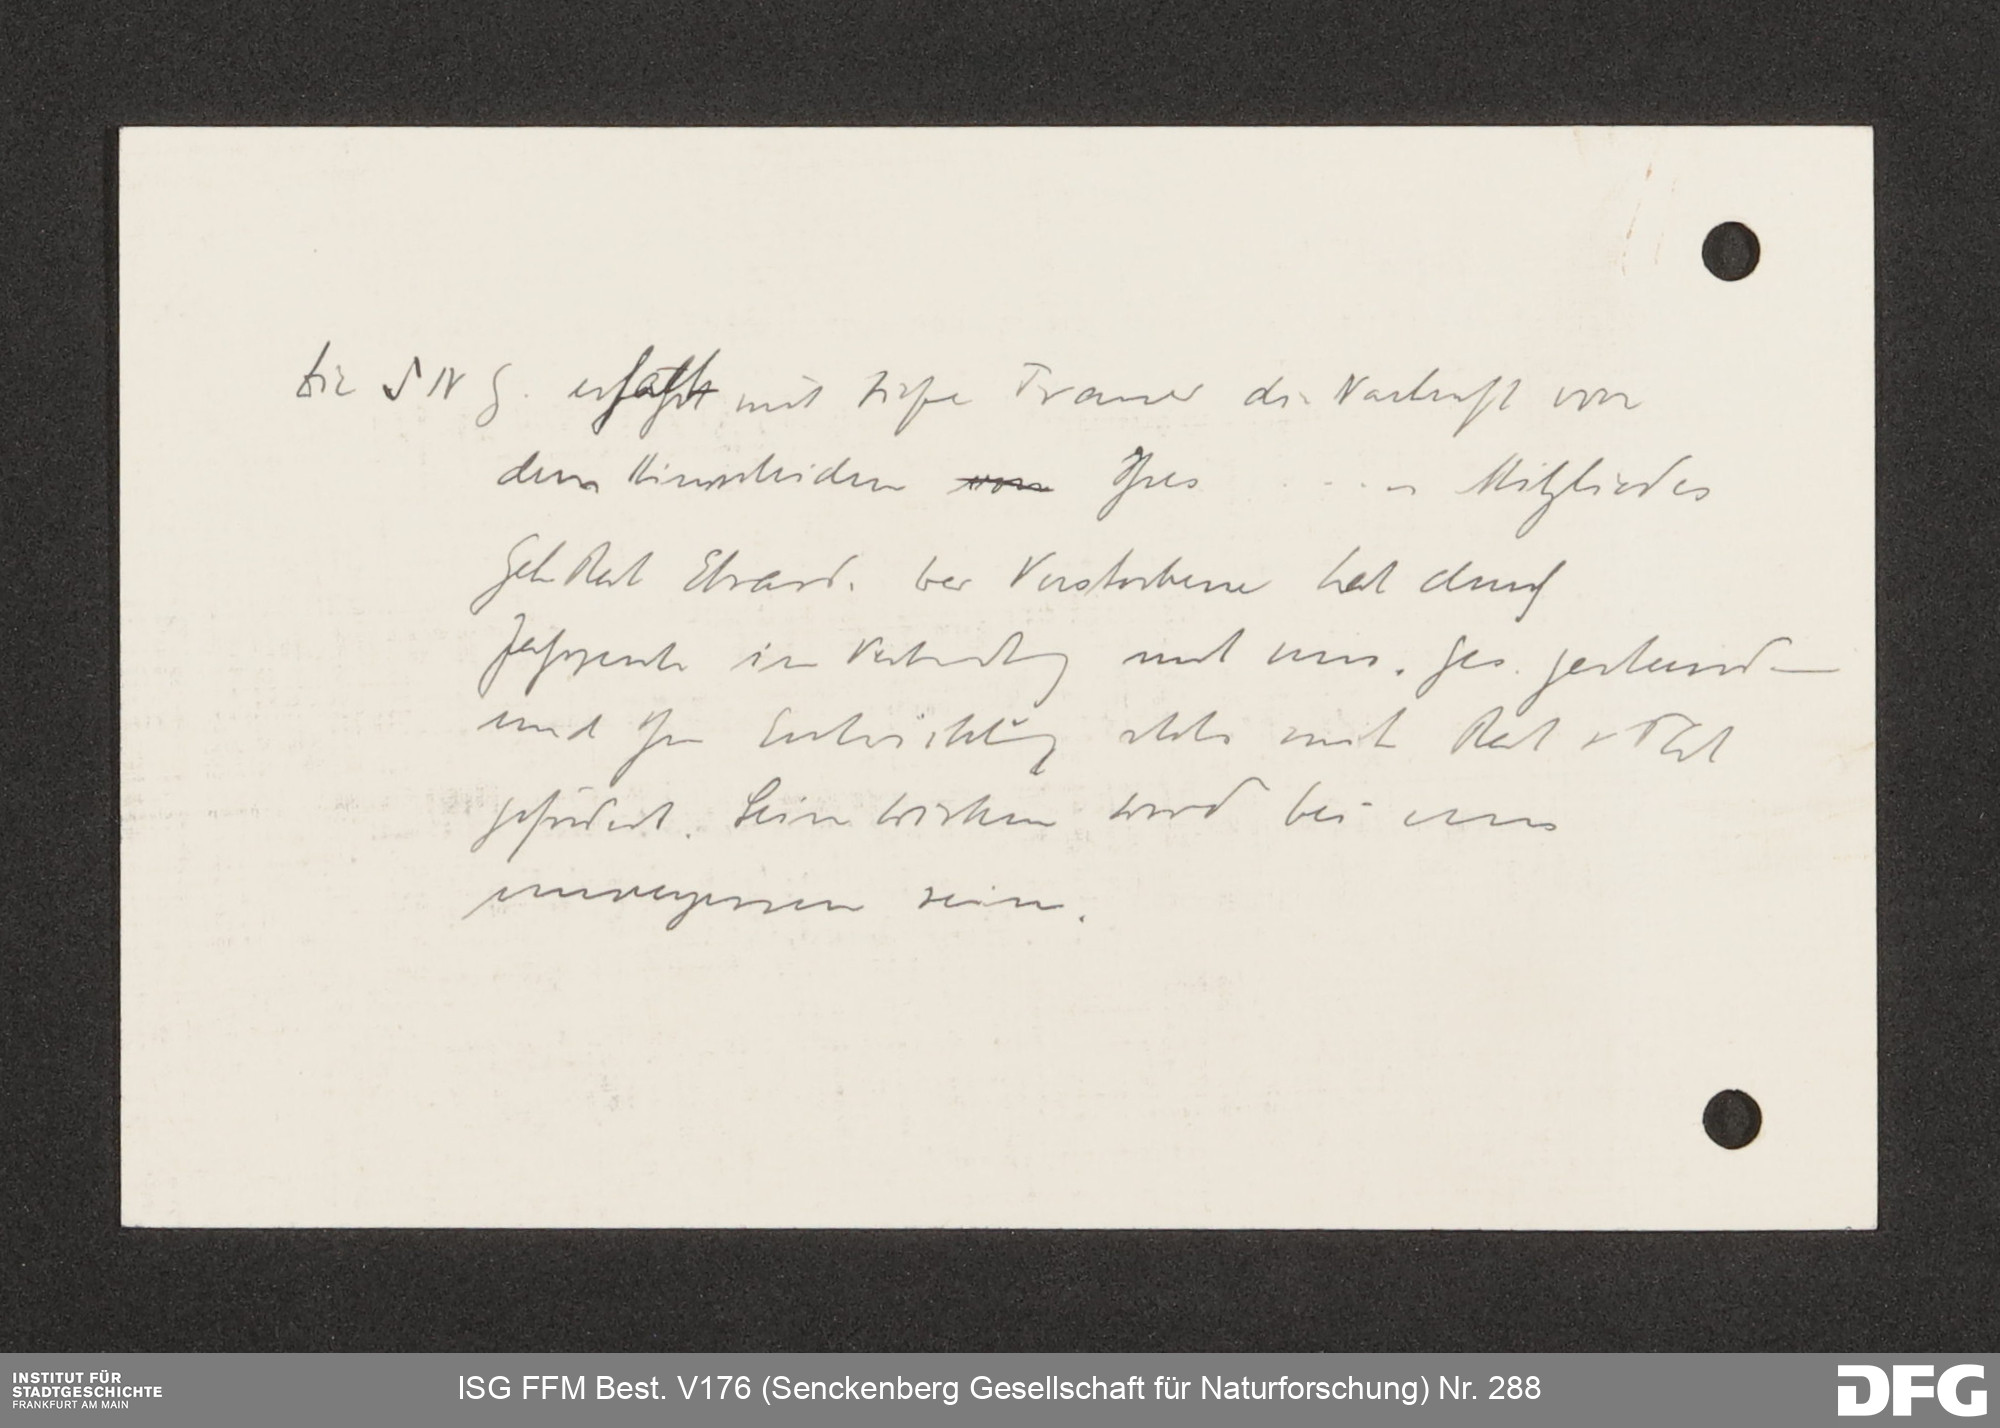 Die SNG. erfährt mit tiefer Trauer die Nachricht von
dem Hinscheiden von Ihres ..... Mitgliedes
Geh Rat Ebrard. Der Verstorbene hat durch
Jahrzente in Verbindung mit uns. Ges. gestanden
und Ihre Entwicklung stets mit Rat u Tat
gefördert. Sein Wirken wird bei uns
unvergessen sein.
INSTITUT FÜR
STADTGESCHICHTE
FRANKFURT AM MAIN
ISG FFM Best. V176 (Senckenberg Gesellschaft für Naturforschung) Nr. 288
DFG